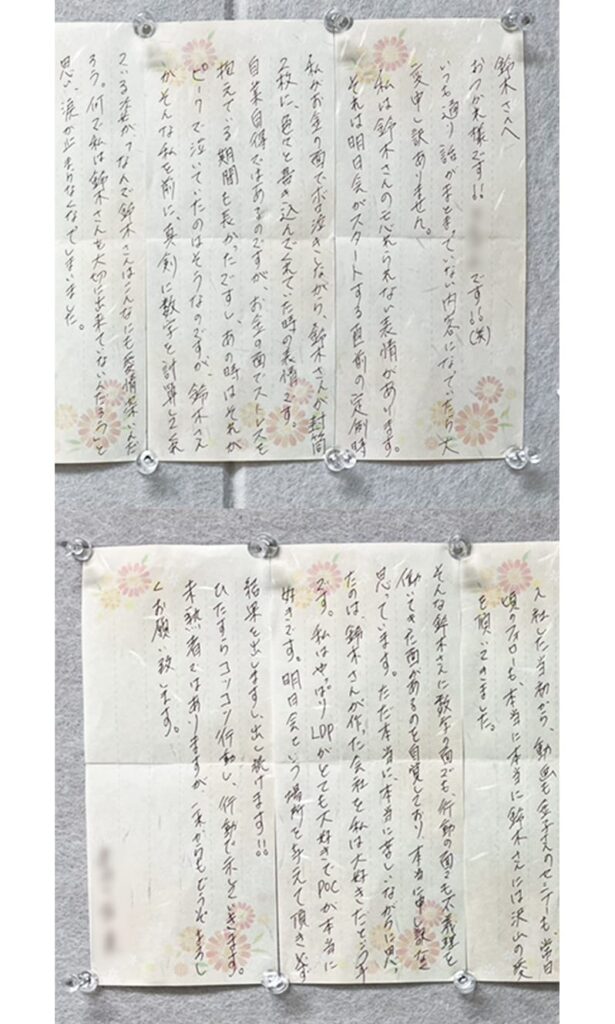 鈴木さんへ
おつかれ様です!! です!!(笑)
いつも通り話がまとまっていない内容になっていたら大
変申し訳ありません。
私は鈴木さんの忘れられない表情があります。
それは明日会がスタートする直前の定例時
私がお金の面でボロ泣きしながら、鈴木さんが封筒
2枚に、色々と書き込んでくれていた時の表情です。
自業自得ではあるのですが、お金の面でストレスを
抱えている期間も長かったですし、あの時はそれが
ピークで泣いていたのはそうなのですが、鈴木さん
がそんな私を前に、真剣に数字を計算してくれ
ている姿がなんで鈴木さんはこんなにも愛情深いんだ
ろう。何で私は鈴木さんを大切に出来ていないんだろうと
思い、涙が止まらなくなってしまいました。
入社した当初から、動画も のセミナーも、常日
頃のフォローも、本当に本当に鈴木さんには沢山の愛
を頂いてきました。
そんな鈴木さんに数字の面でも、行動の面でも不義理を
働いてきた面があるのを自覚しており、本当に申し訳なく
思っています。ただ本当に、本当に苦しいながらに思っ
たのは、鈴木さんが作った会社を私は大好きだという事
です。私はやっぱりLDPがとても大好きでPOCが本当に
好きです。明日会という場所を与えて頂き必ず
結果を出しますし、出し続けます!!
ひたすらコツコツ行動し、行動で示していきます。
未熟者ではありますが、これからもどうぞよろし
くお願い致します。